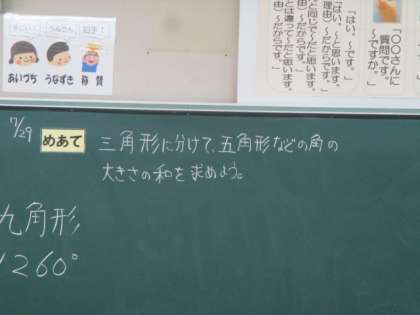 あいづち うなずき 称賛
「はい。~です。」
「はい。~と思います。
理由)~だからです。」
と同じで~だと思います。
由)~だからです。」
とは違って~だと思います。
由)~だからです。」
「〇〇さんに
質問です。
~ですか。」
7/29
めあて
三角形に分けて、五角形などの角の
大きさの和を求めよう。
九角形
1260°